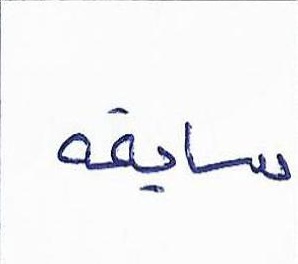 سابقه